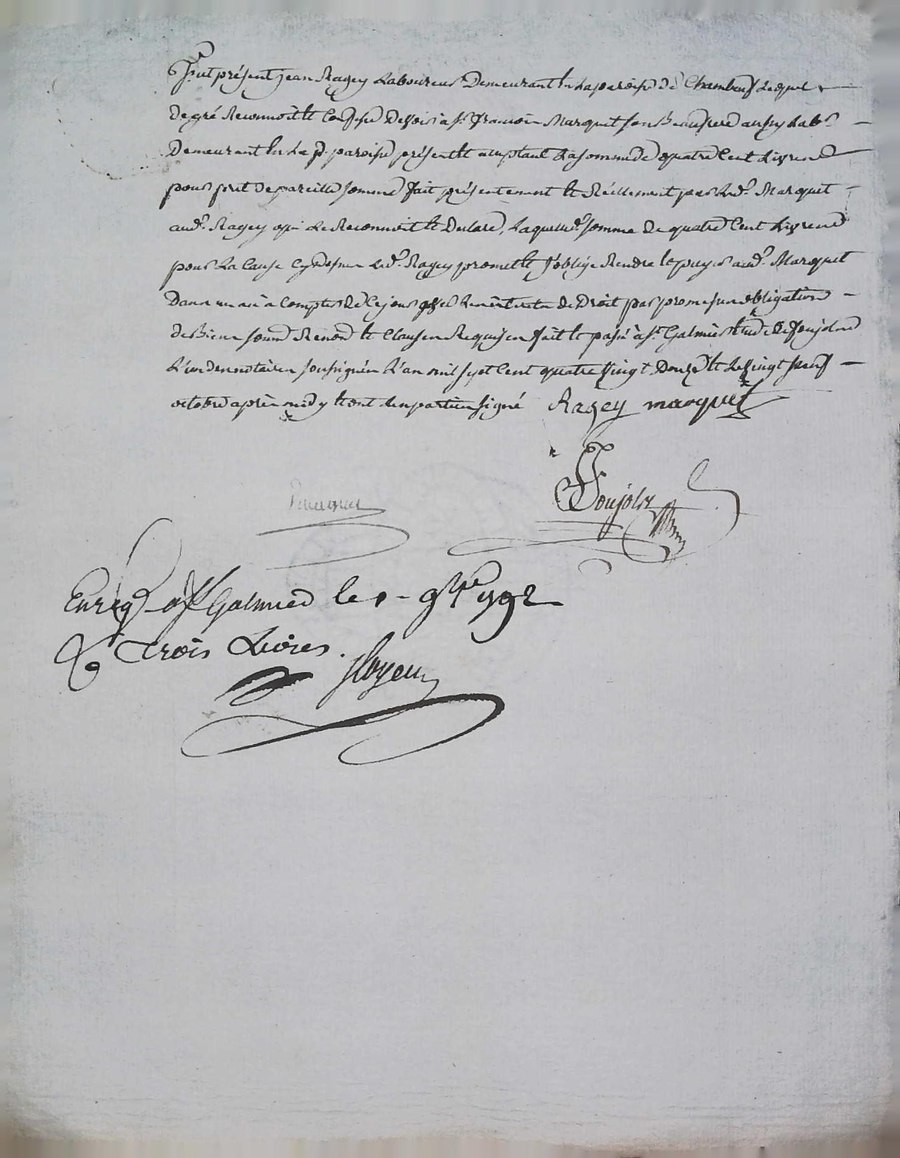 Fut présent jean Ragey Laboureur Demeurant En La paroisse de Chambeuf Lequel
de gré Reconnoit Et Confesse Devoir à sr. françois Marquet son Beaufrere aussy Labr.
Demeurant En La d. paroisse présent Et acceptant La somme de quatre Cent Livres
pour pret de pareille somme fait présentement Et Réellement par Led. Marquet
aud. Ragey qui Le Reconnoit Et Declare, Laquelle somme de quatre Cent Livres
pour La Cause Cy Dessus Led. Ragey promet Et s'oblige Rendre Et payer aud. Marquet
Dans un an à Compter de Ce jour de Droit par promesse obligation
de Biens soumis Renond. Et Clauses Requises fait Et passé à st. Galmier Etude de Soujolod
L'un des notaires soussignés L'an mil sept Cent quatre vingt Douze Et Le vingt neuf
octobre après midy Et ont Les parties signé Ragey marquet
Enreg. a St Galmier le 1er 9bre 1792
R Trois Livres.